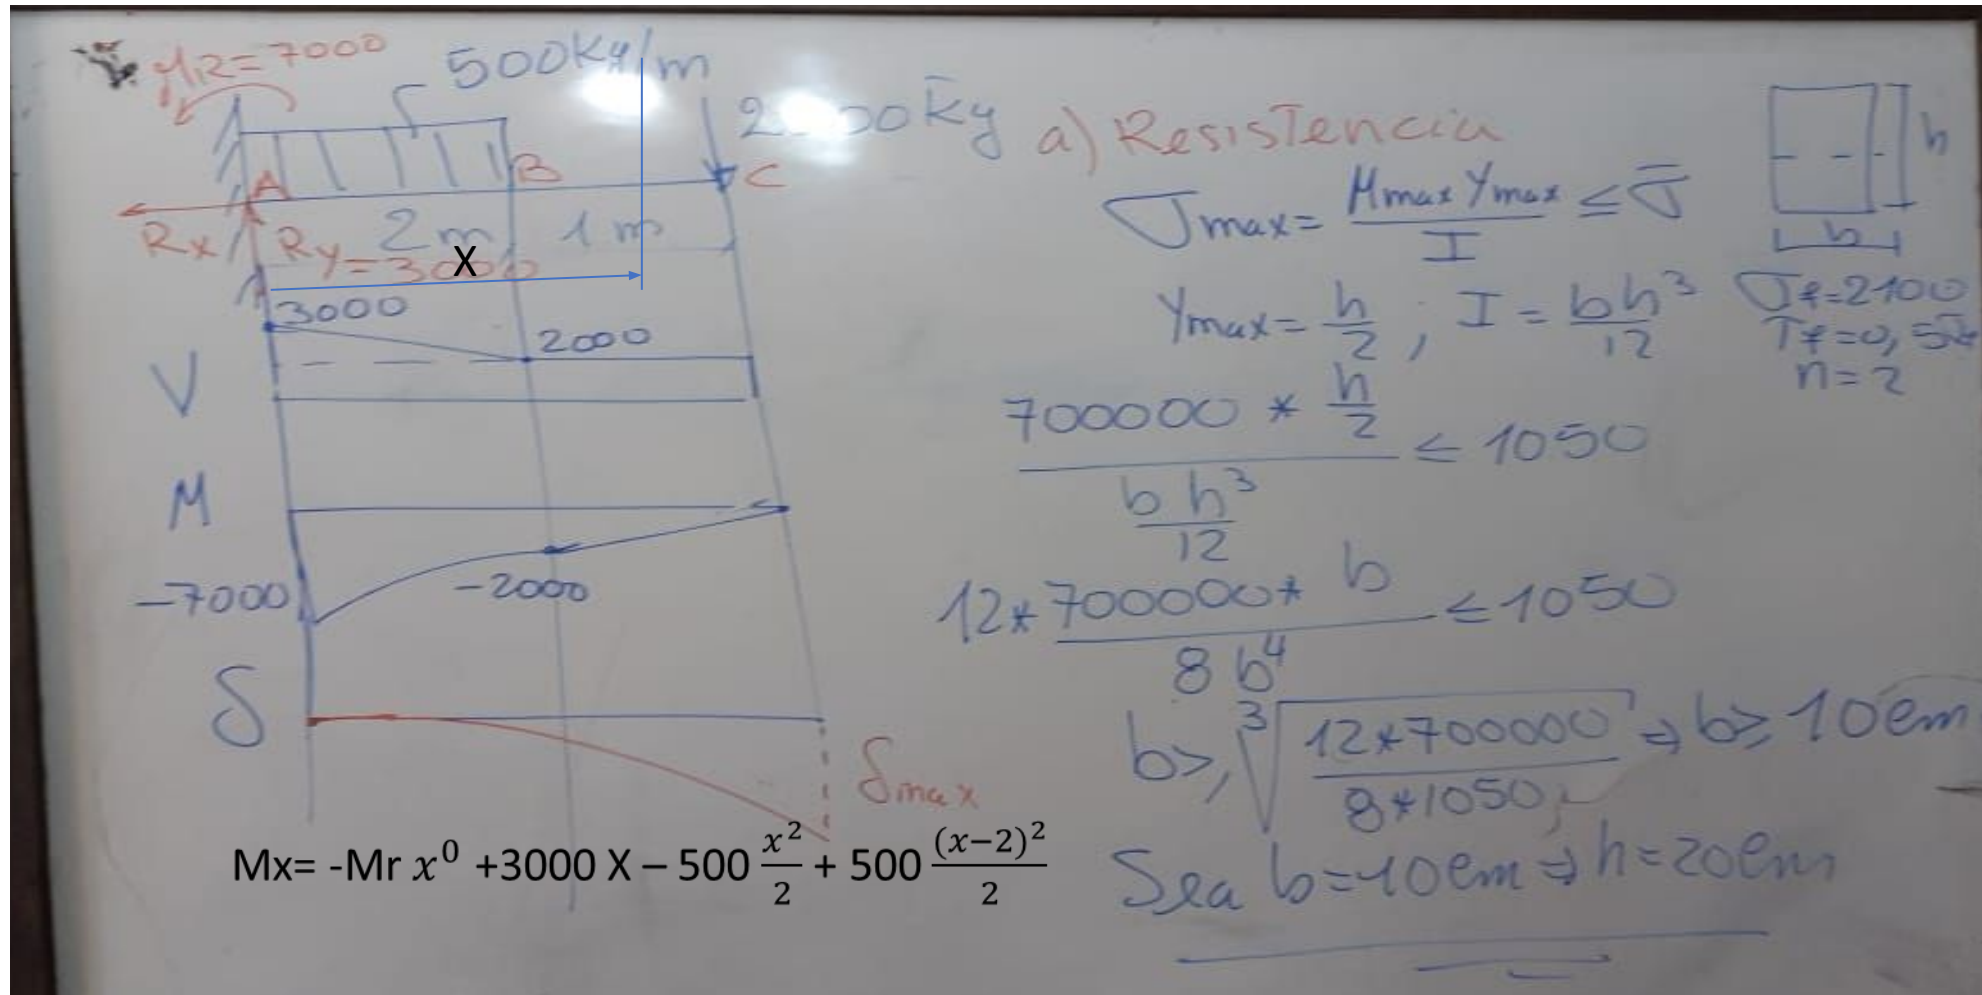 MR=7000
500Kg/m
2000Kg
A
B
C
Rx
Ry=3000
2m
1m
X
3000
2000
V
M
-7000
-2000
δ
δmax
Mx= -Mr x⁰ +3000 X – 500 x²/2 + 500 (x−2)²/2
a) Resistencia
σmax= Mmax Ymax / I ≤ σ̄
h
b
Ymax= h/2 ; I = bh³/12
σf=2100
τf=0,5σf
n=2
700000 * h/2 / (b h³/12) ≤ 1050
12*700000* b / 8b⁴ ≤ 1050
b≥ ³√(12*700000 / 8*1050) ⇒ b≥ 10cm
Sea b=10cm ⇒ h=20cm